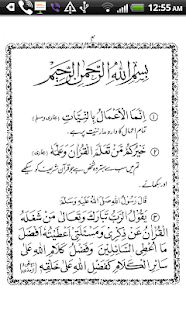 12:55 AM
بِسْمِ اللّٰهِ الرَّحْمٰنِ الرَّحِيْمِ
① اِنَّمَا الْاَعْمَالُ بِالنِّيَّاتِ (بخاری ومسلم)
تمام اعمال کا دار ومدار نیت پر ہے
② خَيْرُكُمْ مَنْ تَعَلَّمَ الْقُرْاٰنَ وَعَلَّمَهٗ (بخاری)
تم میں سب سے بہتر وہ شخص ہے جو قرآن شریف سیکھے
اور سکھائے۔
قَالَ رَسُوْلُ اللّٰهِ صَلَّى اللّٰهُ عَلَيْهِ وَسَلَّمَ
③ يَقُوْلُ الرَّبُّ تَبَارَكَ وَتَعَالٰى مَنْ شَغَلَهُ
الْقُرْاٰنُ عَنْ ذِكْرِيْ وَمَسْئَلَتِيْ اَعْطَيْتُهٗ اَفْضَلَ
مَا اُعْطِي السَّائِلِيْنَ وَفَضْلُ كَلَامِ اللّٰهِ عَلٰى
سَائِرِ الْكَلَامِ كَفَضْلِ اللّٰهِ عَلٰى خَلْقِهٖ